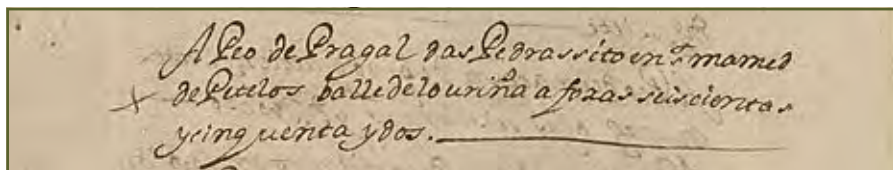 A Peo de Pragal das Pedras sito en S. mamed
de Petelos balle de louriña a fozas seiscientas
y cinquenta y dos.